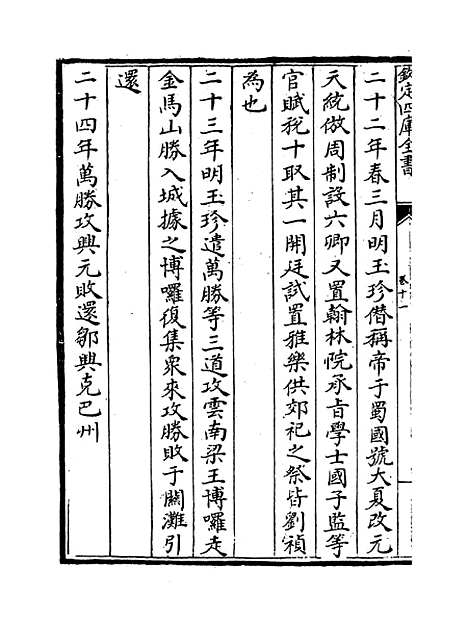 欽定四庫全書
卷十一
二十二年春三月明玉珍僭稱帝于蜀國號大夏改元
天統倣周制設六卿又置翰林院承旨學士國子監等
官賦稅十取其一開廷試置雅樂供郊祀之祭皆劉禎
為也
二十三年明玉珍遣萬勝等三道攻雲南梁王博囉走
金馬山勝入城據之博囉復集衆來攻勝敗于關灘引
還
二十四年萬勝攻興元敗還鄒興克巴州